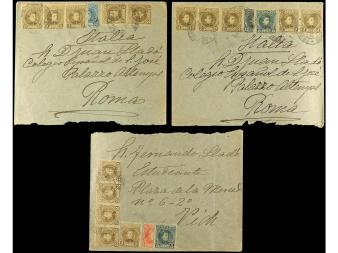 Italia
R. D. Juan Lladó
Colegio Español de S. José
Palazzo Altemps
Roma
Italia
R. D. Juan Lladó
Colegio Español de S. José
Palazzo Altemps
Roma
Fernando Lladó
Estudiante
Plaza de la Merced
nº 6-2º
Vich